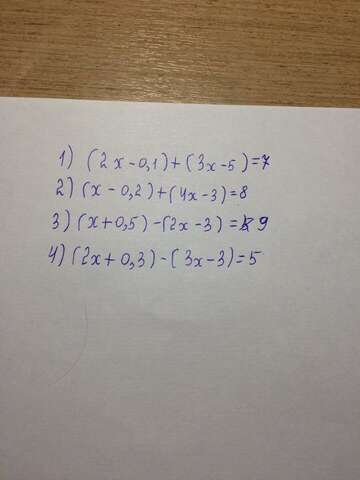 1) (2x-0,1)+(3x-5)=7
2) (x-0,2)+(4x-3)=8
3) (x+0,5)-(2x-3)=9
4) (2x+0,3)-(3x-3)=5